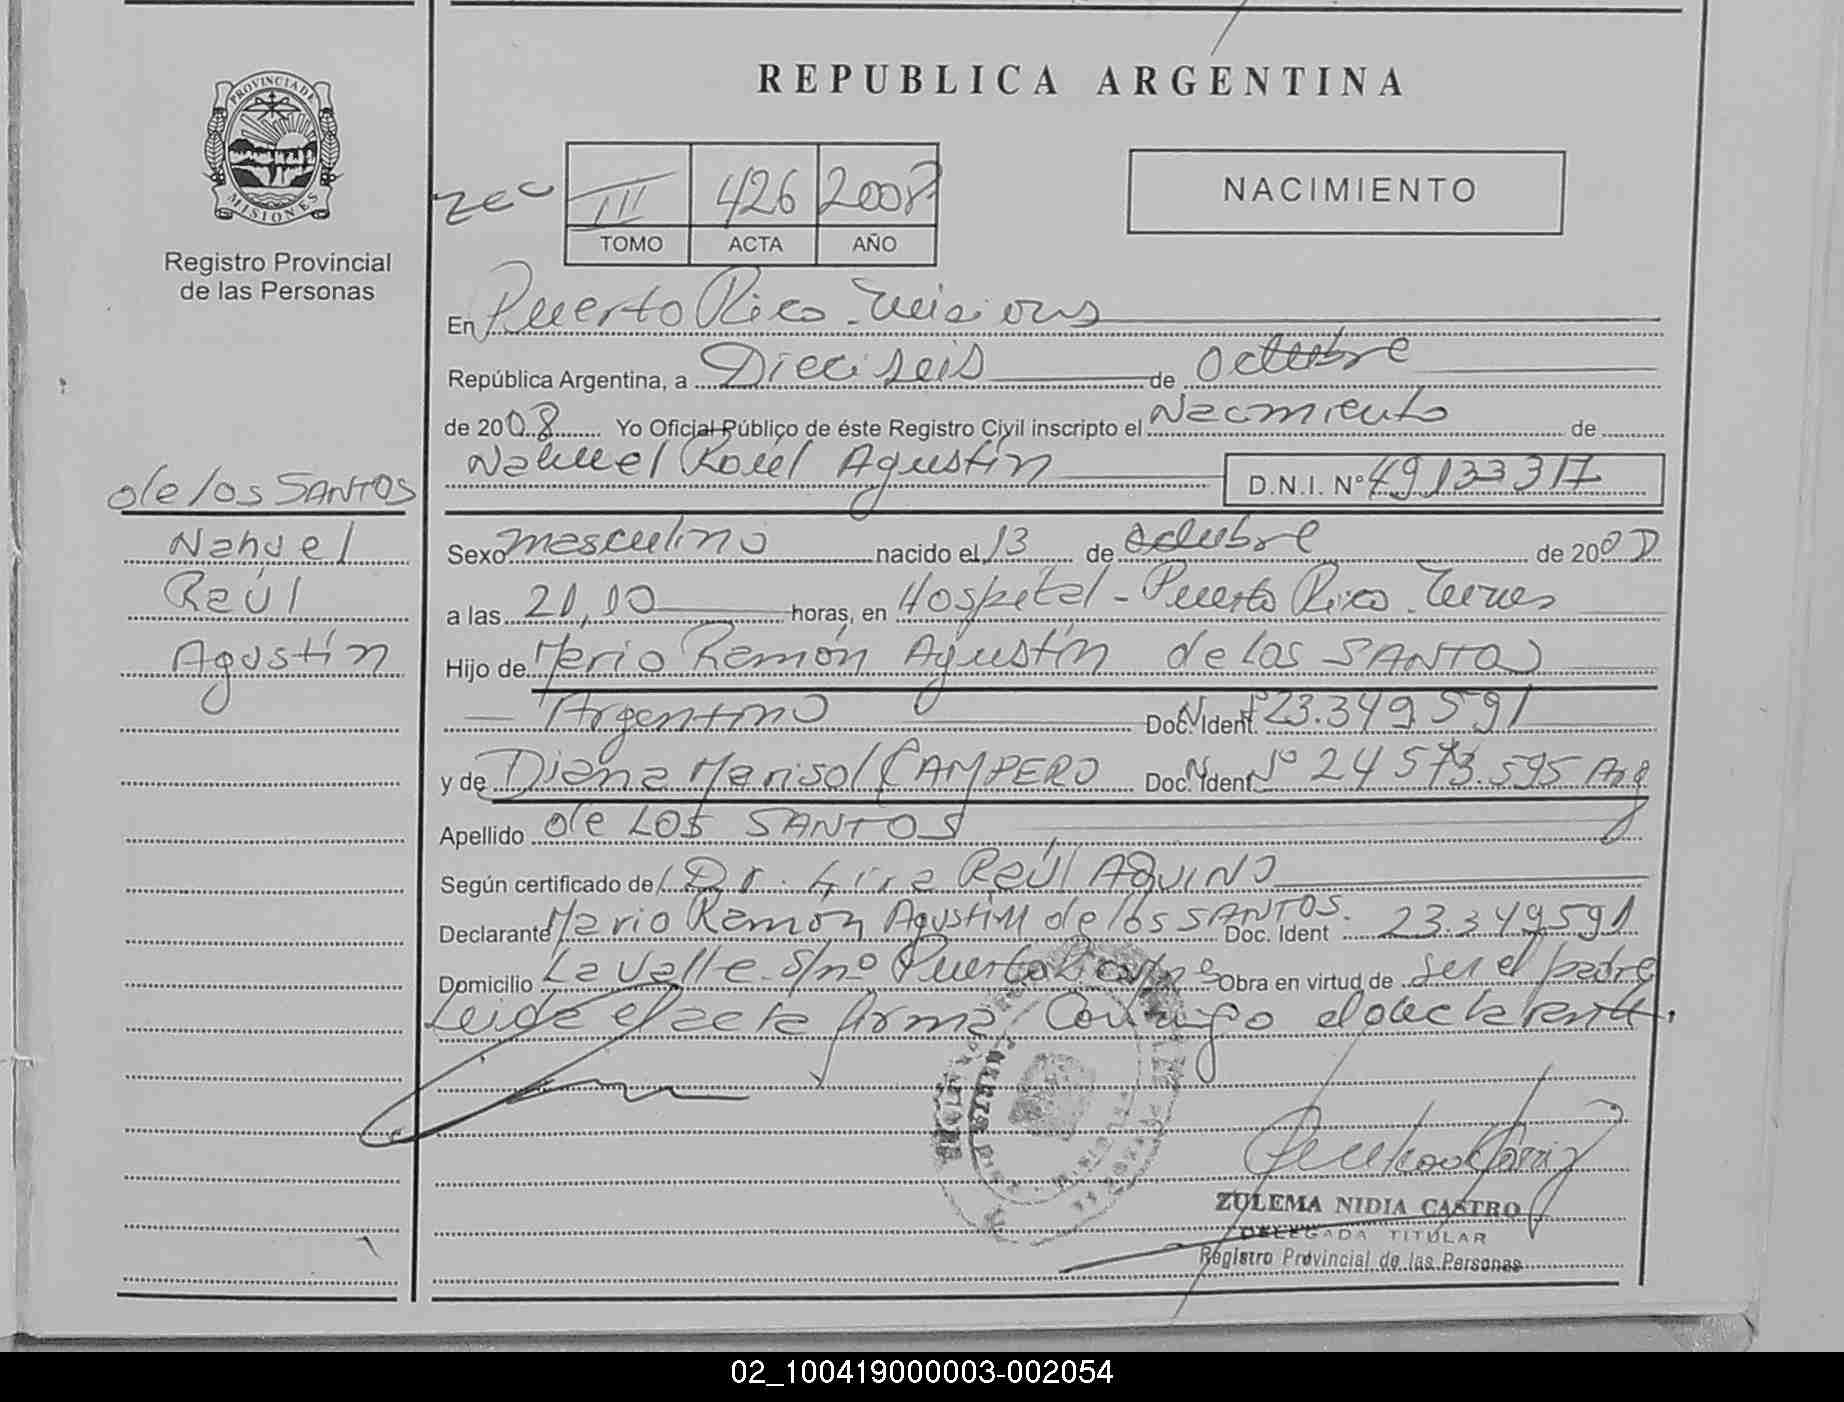 REPUBLICA ARGENTINA
PROVINCIA DE
MISIONES
Registro Provincial
de las Personas
III 426 2008
TOMO ACTA AÑO
NACIMIENTO
En Puerto Rico - Misiones
República Argentina, a Dieciseis de Octubre
de 2008 Yo Oficial Público de éste Registro Civil inscripto el Nacimiento de
Nahuel Raúl Agustín D.N.I. Nº 49133317
de los SANTOS
Nahuel
Raúl
Agustín
Sexo masculino nacido el 13 de octubre de 200
a las 21,10 horas, en Hospital - Puerto Rico -
Hijo de Mario Ramón Agustín de los SANTOS
Argentino Doc. Ident. Nº 23.349.591
y de Diana Marisol CAMPERO Doc. Ident. Nº 24.573.595 Arg
Apellido de LOS SANTOS
Según certificado de Dr. RAÚL AQUINO
Declarante Mario Ramón Agustín de los SANTOS. Doc. Ident 23.349.591
Domicilio Lavalle S/nº Puerto Rico Obra en virtud de ser el padre
Leida el acta firma Conmigo el declarante.
ZULEMA NIDIA CASTRO
DELEGADA TITULAR
Registro Provincial de las Personas
02_100419000003-002054